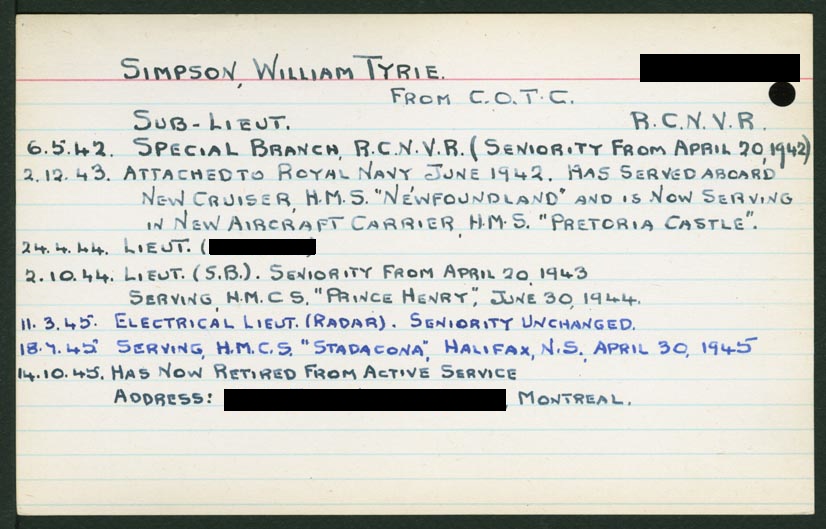 SIMPSON, WILLIAM TYRIE.
FROM C.O.T.C.
SUB-LIEUT. R.C.N.V.R.
6.5.42. SPECIAL BRANCH, R.C.N.V.R. (SENIORITY FROM APRIL 20, 1942)
2.12.43. ATTACHED TO ROYAL NAVY JUNE 1942. HAS SERVED ABOARD
NEW CRUISER, H.M.S. "NEWFOUNDLAND" AND IS NOW SERVING
IN NEW AIRCRAFT CARRIER, H.M.S. "PRETORIA CASTLE".
24.4.44. LIEUT. (
2.10.44. LIEUT. (S.B.). SENIORITY FROM APRIL 20, 1943
SERVING, H.M.C.S. "PRINCE HENRY", JUNE 30, 1944.
11.3.45. ELECTRICAL LIEUT. (RADAR). SENIORITY UNCHANGED.
18.7.45 SERVING, H.M.C.S. "STADACONA", HALIFAX, N.S., APRIL 30, 1945
14.10.45. HAS NOW RETIRED FROM ACTIVE SERVICE
ADDRESS: , MONTREAL.